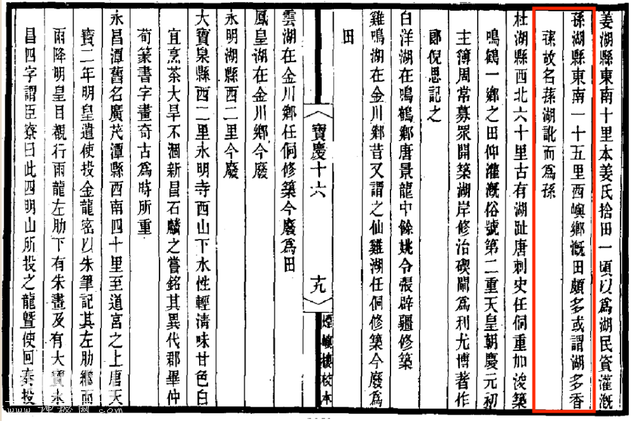 姜湖縣東南十里本姜氏捨田一頃以爲湖民資灌漑
孫湖縣東南一十五里西嶼鄉漑田頗多或謂湖多香
蓀故名蓀湖訛而爲孫
杜湖縣西北六十里古有湖趾唐刺史任侗重加浚築
鳴鶴一鄉之田仰灌漑俗號第二重天皇朝慶元初
主簿周常募衆開築湖岸修治碶閘爲利尤博著作
郎倪思記之
白洋湖在鳴鶴鄉唐景龍中餘姚令張辟疆修築
雞鳴湖在金川鄉昔又謂之仙雞湖任侗修築今廢爲
田
寶慶十六
十九
煙嶼樓校本
雲湖在金川鄉任侗修築今廢爲田
鳳皇湖在金川鄉今廢
永明湖縣西二里今廢
大寶泉縣西二里永明寺西山下水性輕清味甘色白
宜烹茶大旱不涸新昌石麟之嘗銘其異代郡畢仲
荀篆書字畫奇古爲時所重
永昌潭舊名廣茂潭縣西南四十里至道宮之上唐天
寶二年明皇遣使投金龍密以朱筆記其左肋鄉而
雨降明皇目觀行雨龍左肋下有朱畫及有大寶永
昌四字謂臣寮曰此四明山所投之龍曁使回奏投